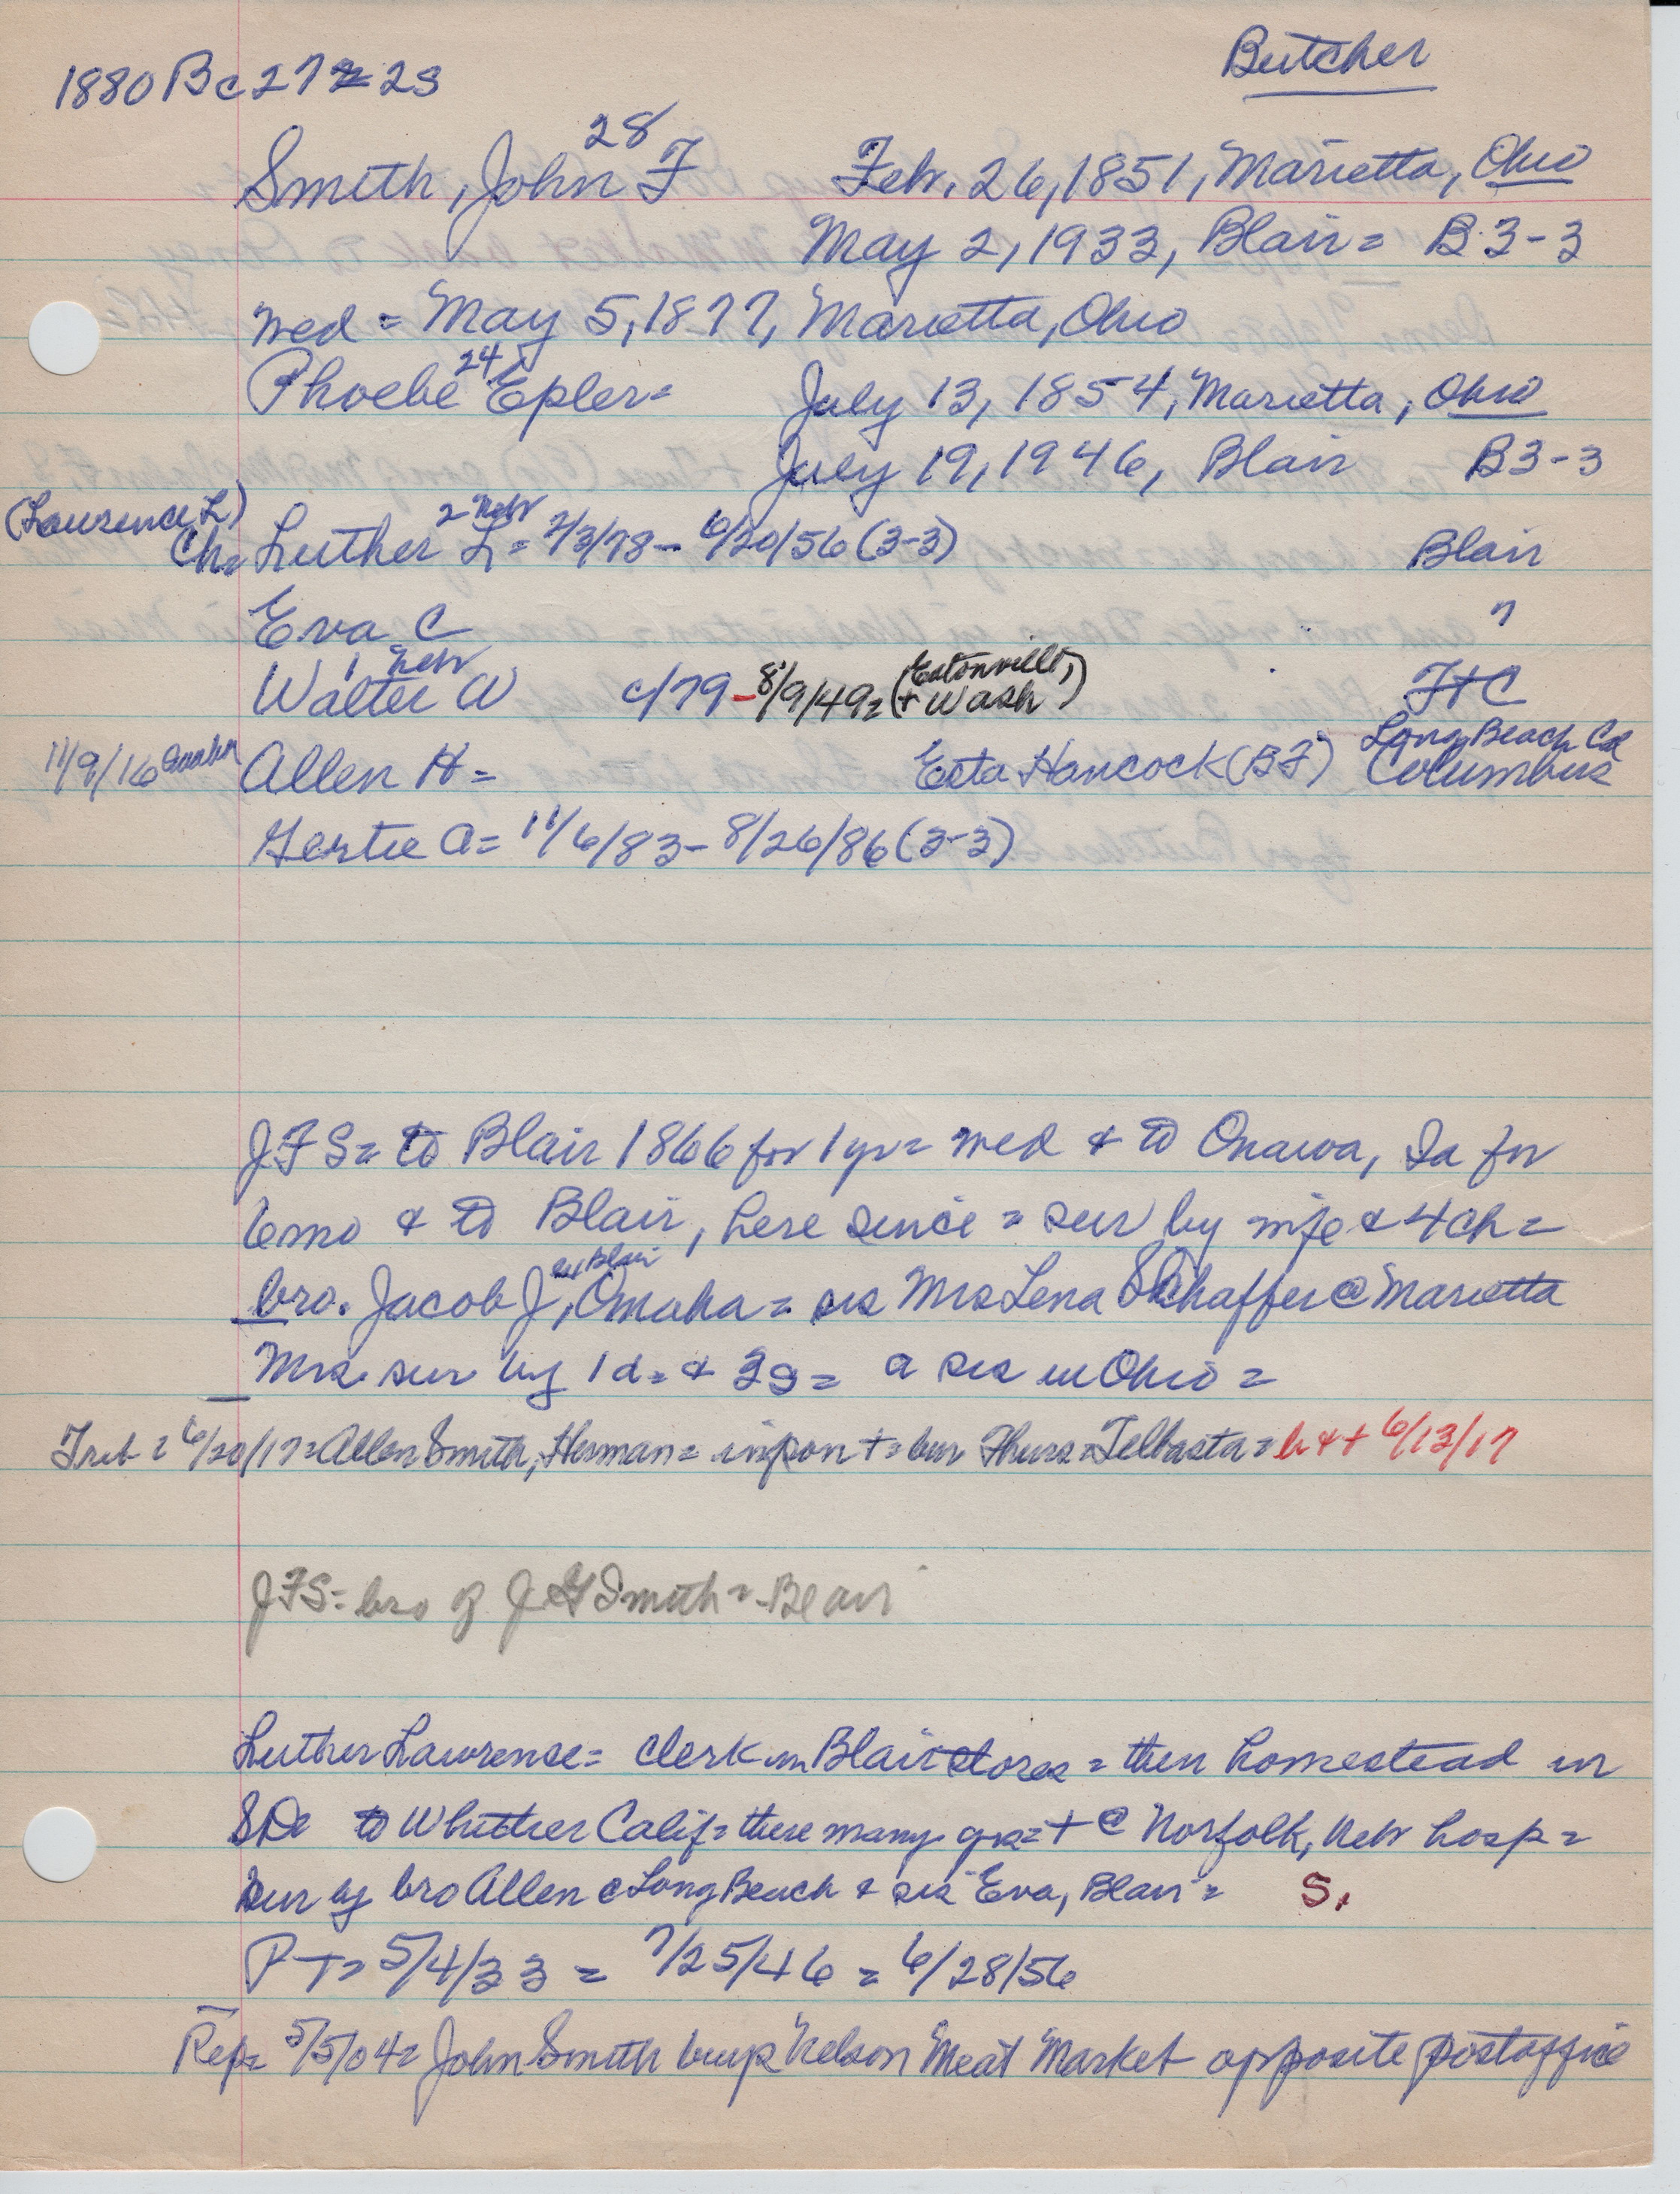 Butcher
1880 Bc 27 = 23
28
Smith, John F Feb. 26, 1851, Marietta, Ohio
May 2, 1933, Blair = B 3-3
Med = May 5, 1877, Marietta, Ohio
24
Phoebe Epler = July 13, 1854, Marietta, Ohio
July 19, 1946, Blair B3-3
(Laurence L) 2 Nebr
Ch = Luther L = 2/3/78 - 6/20/56 (3-3) Blair
Eva C ?
1 Nebr
Walter W c/79 - 8/9/49 = (+ Eatonville, Wash) FtC
Long Beach Cal
11/9/16 Omaha Allen H = Esta Hancock (BF) Columbus
Gertie A = 11/6/83 - 8/26/86 (3-3)
JFS = to Blair 1866 for 1 yr = med & to Onawa, Ia for
6mo & to Blair, here since = sur by wife & 4 ch =
ex Blair
bro. Jacob J, Omaha = sis Mrs Lena Schaffer @ Marietta
Mrs. sur by 1 d. & 3 s = a sis in Ohio =
Trib = 6/20/17 = Allen Smith, Herman = infson + = bur Thurs = Telbasta = b & + 6/13/17
JFS = bro of J G Smith = Blair
Luther Lawrense = Clerk in Blair stores = then homestead in
SD to Whittier Calif = there many yrs = + @ Norfolk, Nebr hosp =
sur by bro Allen @ Long Beach & sis Eva, Blair = S.
PT = 5/4/33 = 7/25/46 = 6/28/56
Rep = 5/5/04 = John Smith buys Nelson Meat Market opposite postoffice